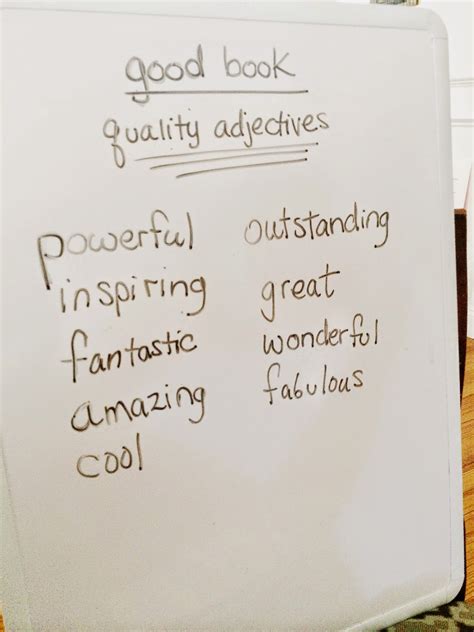 good book
quality adjectives
powerful
inspiring
fantastic
amazing
cool
outstanding
great
wonderful
fabulous